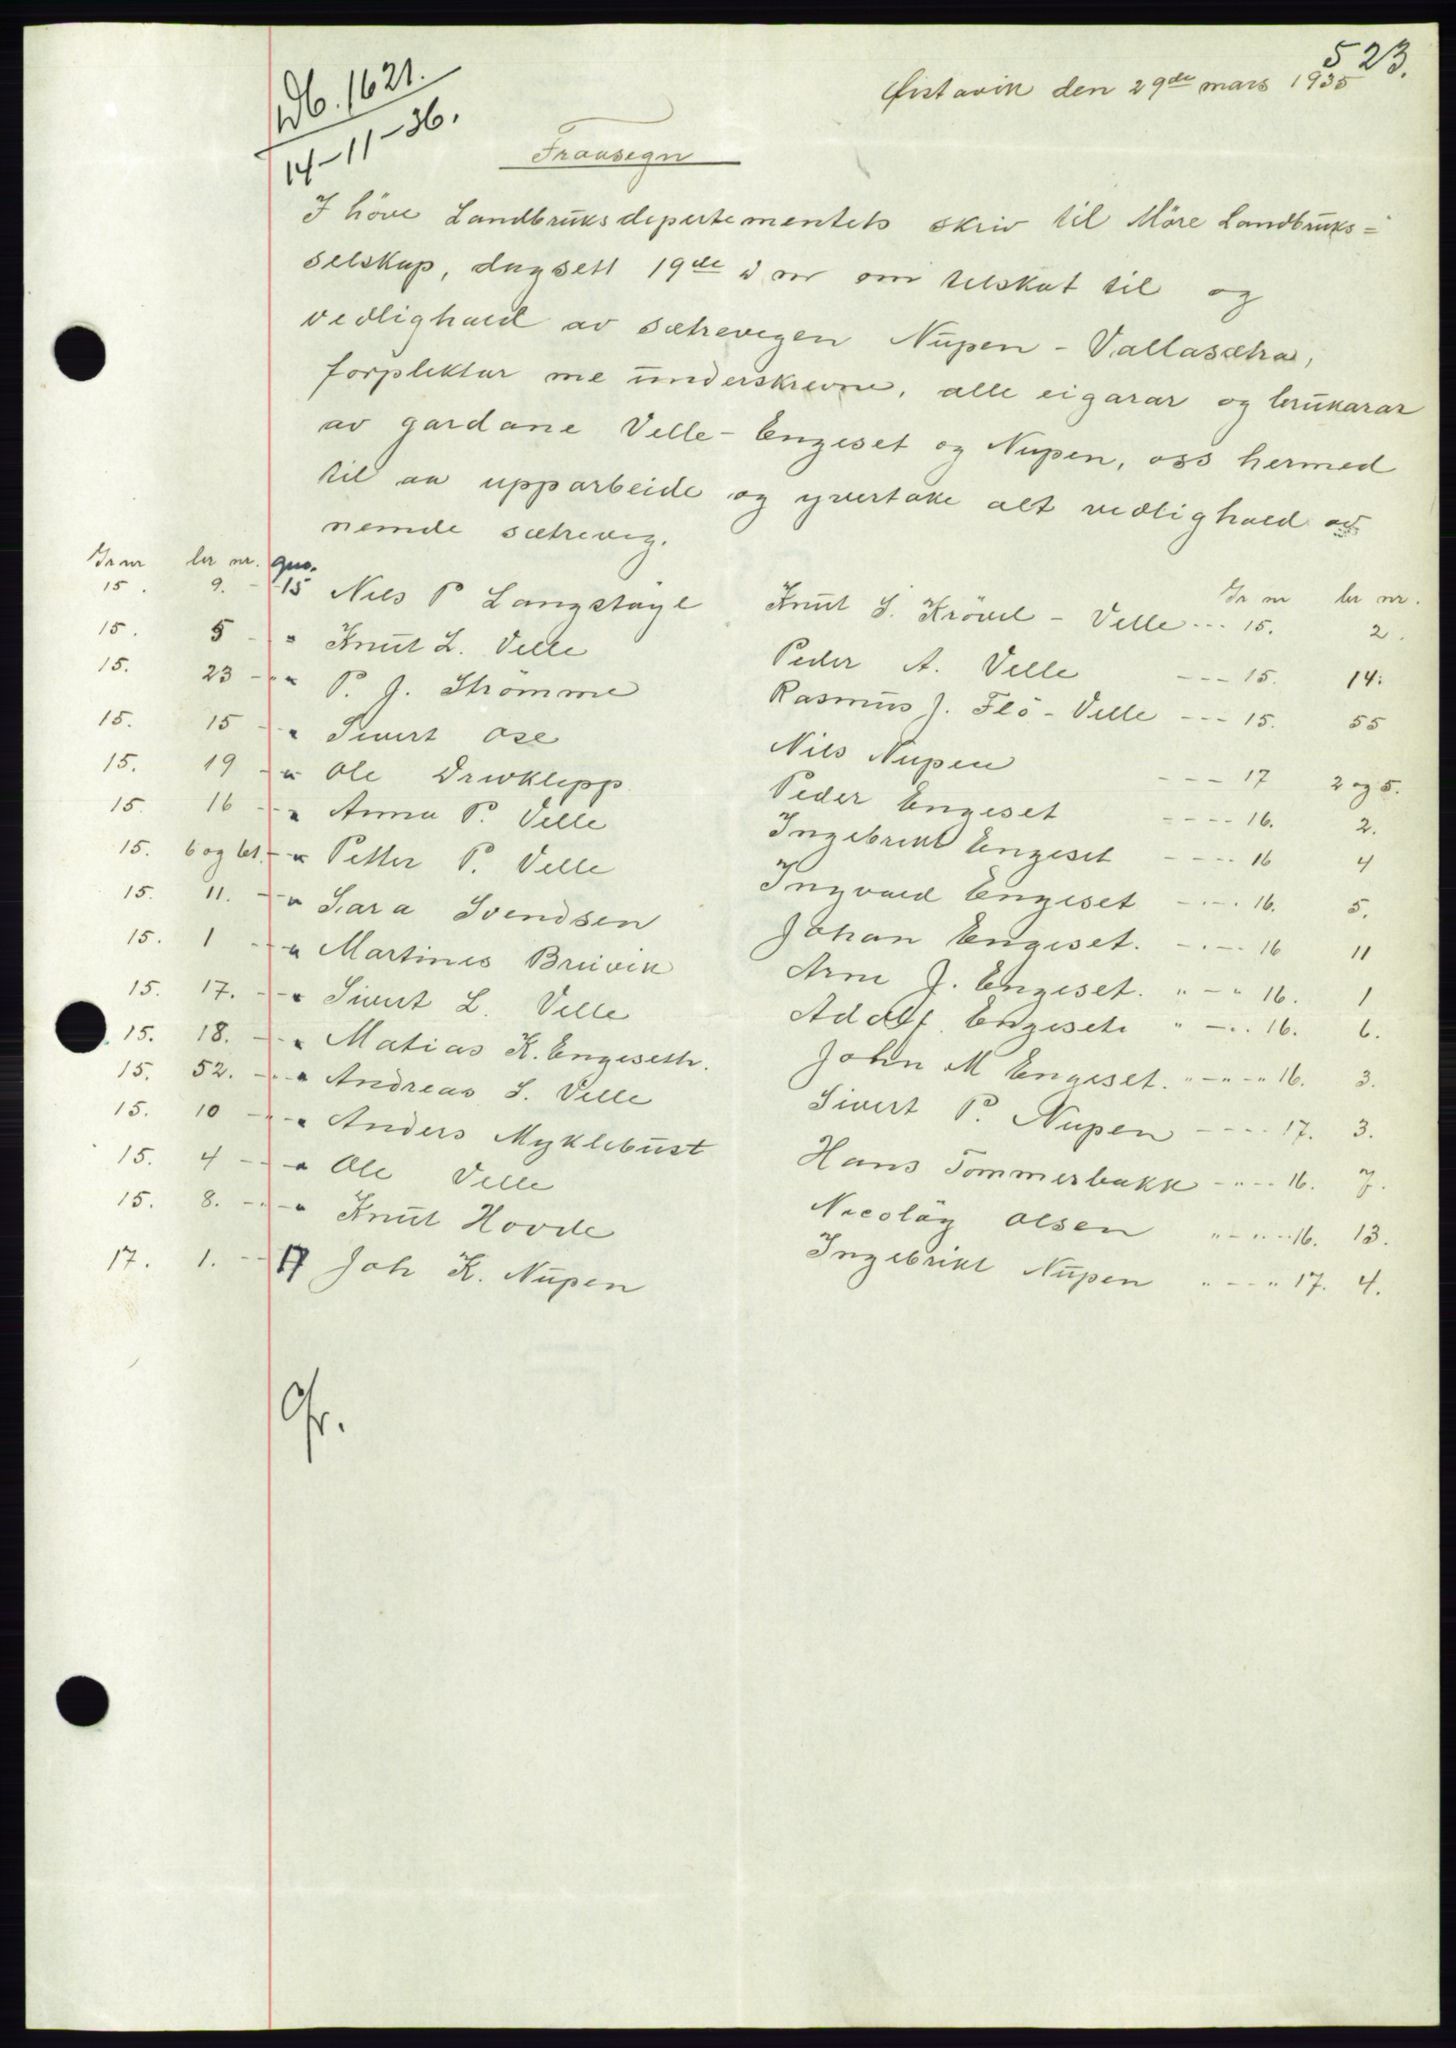 523.
Db. 1621.
14-11-36.
Örstavik den 29de mars 1935
Fraasegn
I höve Landbruksdepertementets skriv til Möre Landbruks=
selskap, dagsett 19de d m om tilskot til og
vedlighald av sætrevegen Nupen - Vallasætra,
forpliktar me underskrevne, alle eigarar og brukarar
av gardane Velle - Engeset og Nupen, oss hermed
til aa upparbeide og yvertake alt vedlighald av
nemde sætreveg.
Gr nr br nr. gnr.
15. 9. - 15 Nils P Langstöyl
15. 5 - " Knut L. Velle
15. 23 - " P. J. Strömme
15. 15 - " Sivert Ose
15. 19 - " Ole Drivklepp
15 16 - " Anna P. Velle
15. 6 og 61. - " Petter P. Velle
15. 11. - " Sara Svendsen
15. 1 - " Martines Breivik
15. 17. - " Sivert L. Velle
15. 18. - " Matias K. Engeseth.
15. 52. - " Andreas S. Velle
15. 10 - " Anders Myklebust
15. 4 - " Ole Velle
15. 8. - " Knut Hovde
17. 1. - 17 Joh K. Nupen
Gr nr br nr.
Knut S. Krövel - Velle --- 15. 2.
Peder A. Velle --- 15. 14.
Rasmus J. Flö - Velle --- 15. 55
Nils Nupen --- 17 2 og 5.
Peder Engeset ---- 16. 2.
Ingebrikt Engeset ---- 16 4
Ingvald Engeset ---- 16. 5.
Johan Engeset. ---- 16 11
Arne J. Engeset. " - " 16. 1
Adolf Engeset " - " 16. 6.
John M Engeset. " - " - " 16. 3.
Sivert P. Nupen ---- 17. 3.
Hans Tommerbakk - " - 16. 7.
Nicolay Olsen " - " - " 16. 13.
Ingebrikt Nupen " - - " 17. 4.